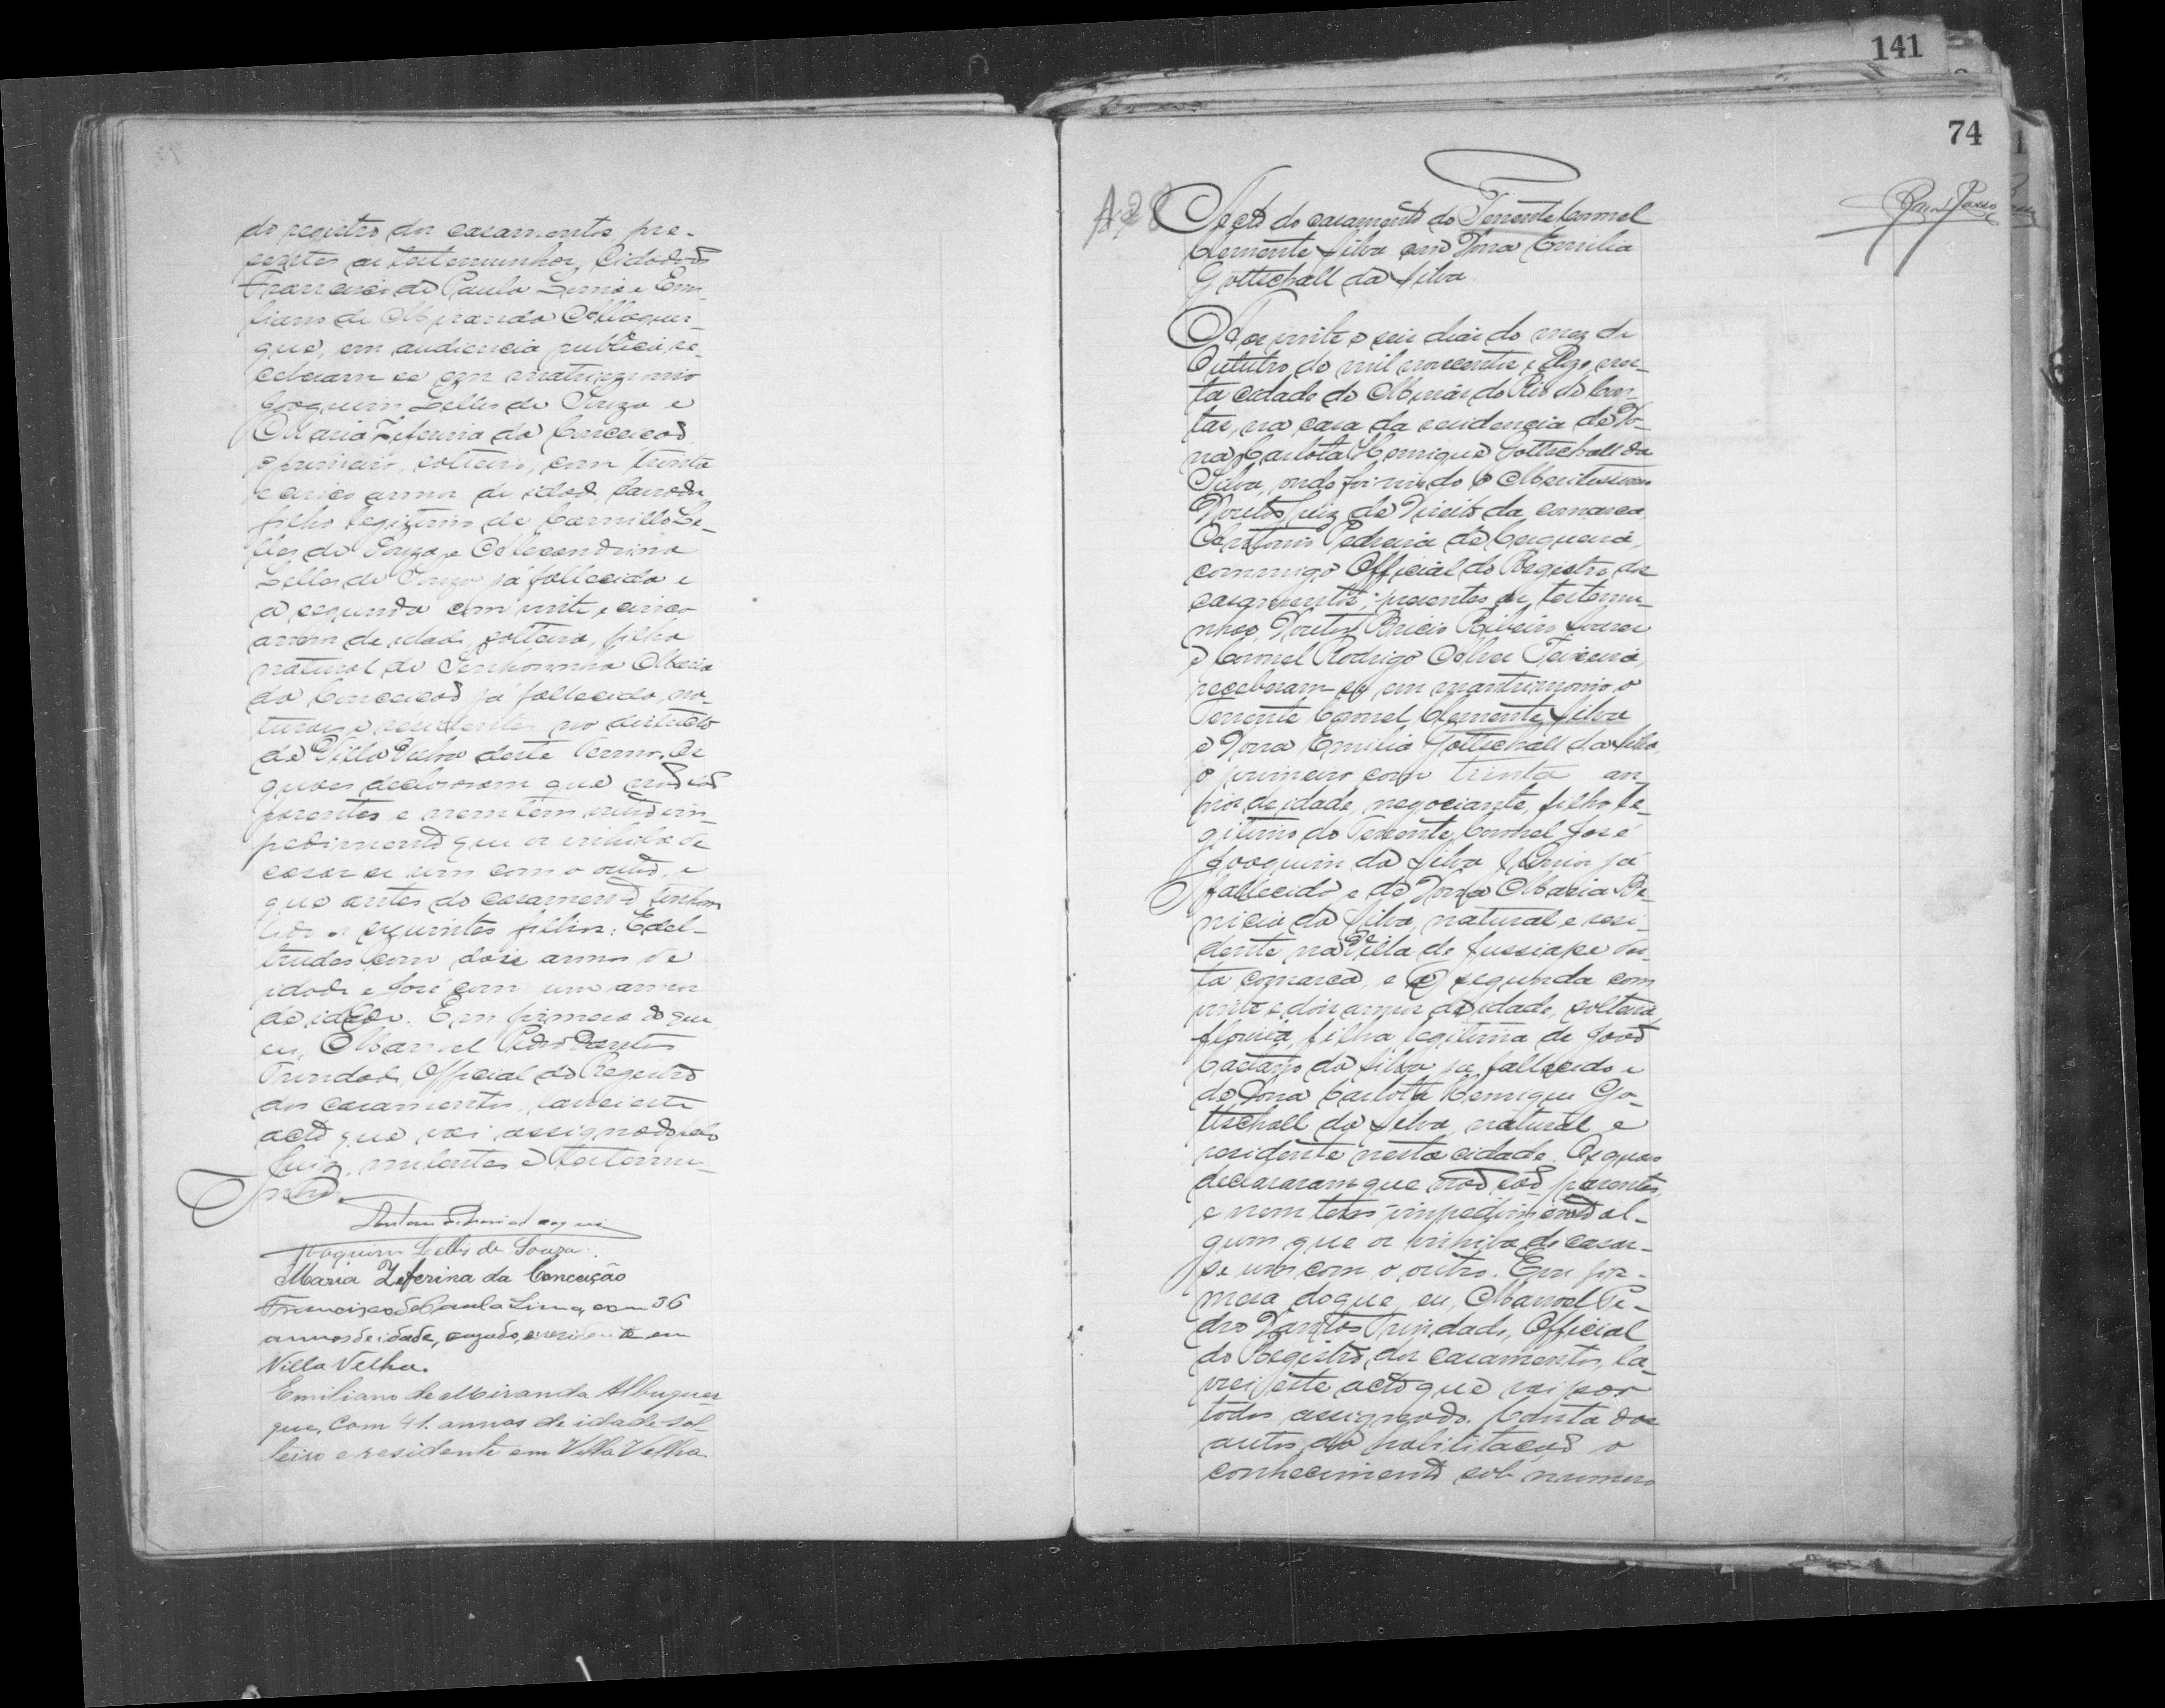 do registro dos casamentos pre-
sentes as testemunhas, Cidadãos
Francisco de Paula Lima e Emi-
liano de Miranda Albuquer-
que, em audiencia publica, re-
ceberam se em matrimonio
Joaquim Lelles de Souza e
Maria Zeferina da Conceicaõ,
o primeiro, solteiro, com trinta
e cinco annos de idade, lavrador
filho legitimo de Camillo Le-
lles de Souza e Alexandrina
Lelles de Souza já fallecida e
a segunda com vinte e cinco
annos de idade, solteira, filha
natural de Senhorinha Maria
da Conceicaõ já fallecida, na-
turaes e residentes no districto
de Villa Velha deste Termo. Os
quaes declararam que naõ saõ
parentes e nem tem outro im-
pedimento que os inhiba de
casar se um com o outro, e
que antes do casamento tinham
tido os seguintes filhos: Edel-
trudes com dois annos de
idade e José com um anno
de idade. E em firmesa do que
eu, Manoel Pedro Dantes
Trindade, Official do Registro
dos casamentos, lavrei este
acto que vai assignado pelo
Juiz, nubentes e testemu-
nhas.
Joaquim Lelles de Souza.
Maria Zeferina da Conceição
Francisco de Paula Lima, com 36
annos de idade, cazado, e residente em
Villa Velha.
Emiliano de Miranda Albuquer-
que, com 41. annos de idade sol-
teiro e residente em Villa Velha.
141
74
Acto do casamento do Tenente Coronel
Clemente Silva com Dona Emilia
Gottschall da Silva.
Aos vinte e seis dias do mez de
Outubro de mil novecentos e onze, nes-
ta cidade de Minas do Rio de Con-
tas, na casa da residencia de Do-
na Carlota Henrique Gottschall da
Silva, onde foi vindo o Meritissimo
Doutor Juiz de Direito da comarca,
Pedreira de Cerqueira,
commigo Official do Registro dos
casamentos; presentes as testemu-
nhas, Doutor Ribeiro
e Coronel Rodrigo Alves Teixeira,
receberam-se em matrimonio o
Tenente Coronel Clemente Silva
e Dona Emilia Gottschall da Silva,
o primeiro com trinta an-
nos de idade, negociante, filho le-
gitimo do Tenente Coronel José
Joaquim da Silva já
fallecido e de Dona Maria Be-
nicia da Silva, natural e resi-
dente na Villa de Jussiape des-
ta comarca, e a segunda com
vinte e dois annos de idade, solteira,
filha legitima de João
Caetano da Silva já fallecido e
de Dona Carlota Henrique Go-
ttschall da Silva, natural e
residente nesta cidade. Os quaes
declararam que naõ saõ parentes,
e nem tem impedimento al-
gum que os inhiba de casar-
se um com o outro. Em fir-
mesa do que, eu, Manoel Pe-
dro Dantes Trindade, Official
do Registro dos casamentos, la-
vrei este acto que vai por
todos assignado. Consta dos
autos da habilitaçaõ o
conhecimento sob numero